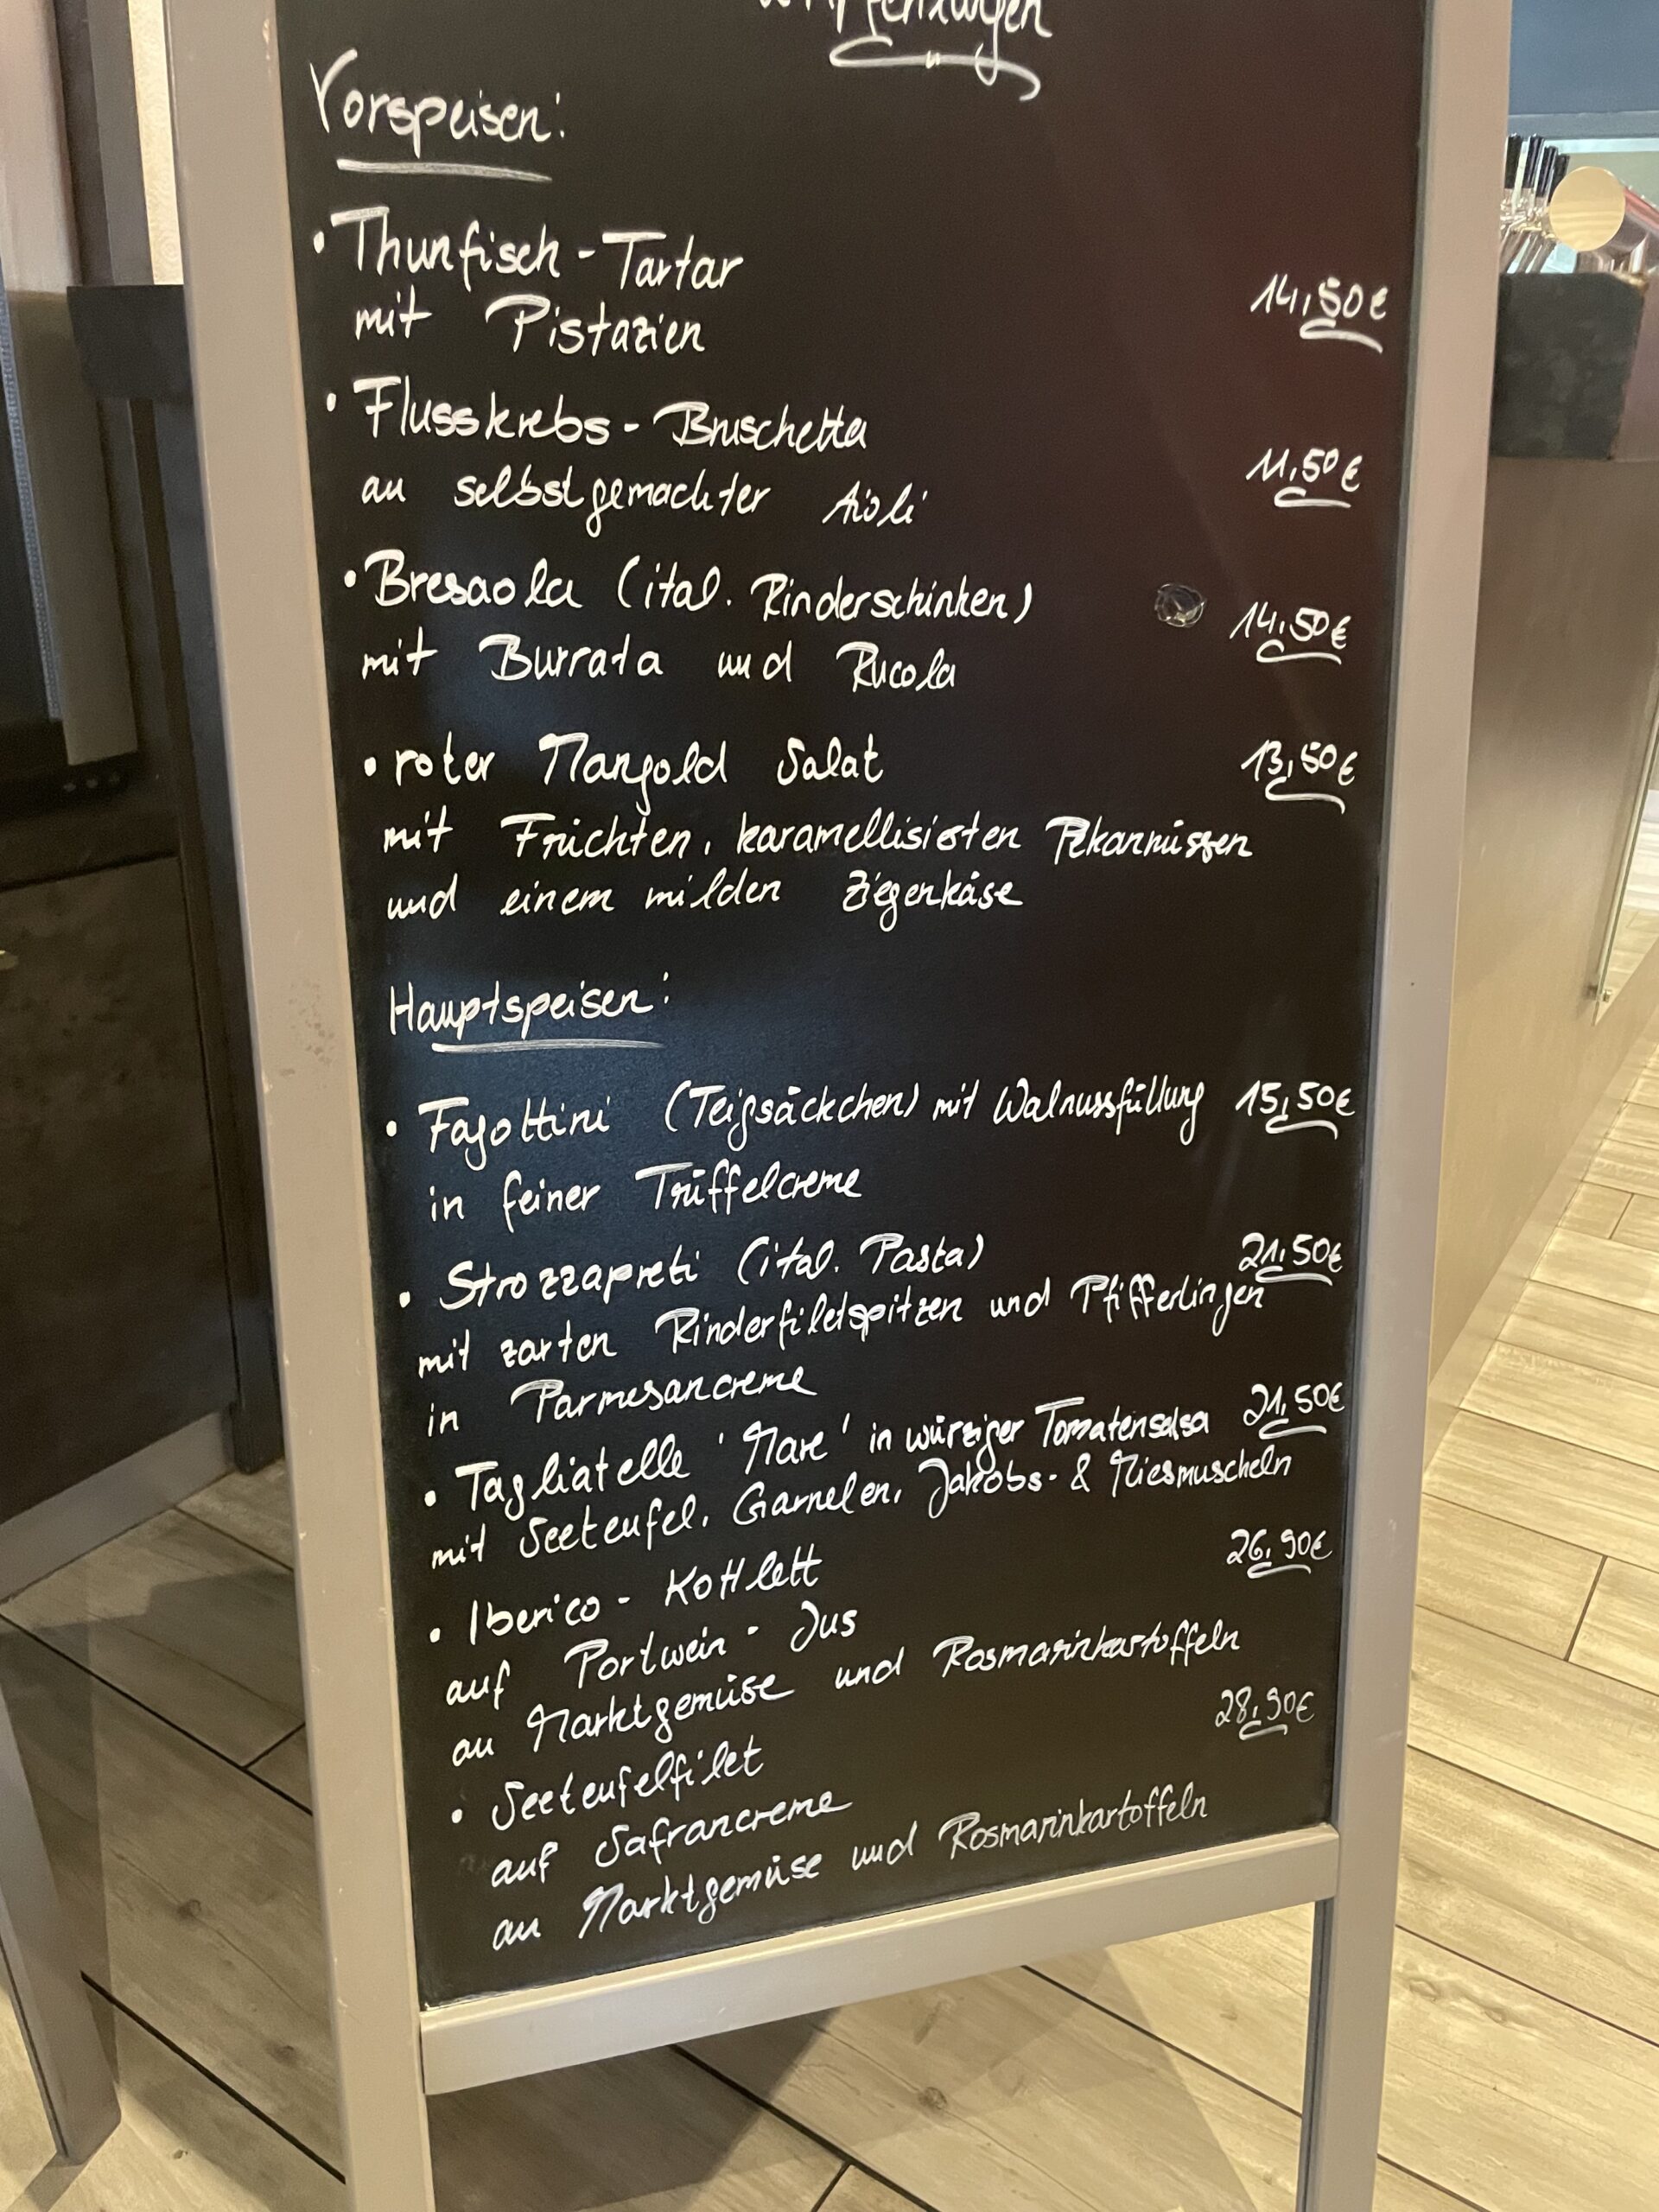 Vorspeisen:
• Thunfisch - Tartar
mit Pistazien 14,50€
• Flusskrebs - Bruschetta
an selbstgemachter Aioli 11,50€
• Bresaola (ital. Rinderschinken) 14,50€
mit Burrata und Rucola
• roter Mangold Salat 13,50€
mit Früchten, karamellisierten Pekannüssen
und einem milden Ziegenkäse
Hauptspeisen:
• Fagottini (Teigsäckchen) mit Walnussfüllung 15,50€
in feiner Trüffelcreme
• Strozzapreti (ital. Pasta) 21,50€
mit zarten Rinderfiletspitzen und Pfifferlingen
in Parmesancreme
• Tagliatelle 'Mare' in würziger Tomatensalsa 21,50€
mit Seeteufel, Garnelen, Jakobs- & Miesmuscheln
• Iberico - Kottlett 26,90€
auf Portwein - Jus
an Marktgemüse und Rosmarinkartoffeln
• Seeteufelfilet 28,90€
auf Safrancreme
an Marktgemüse und Rosmarinkartoffeln